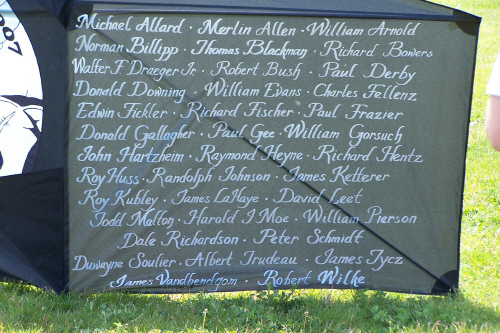 007
Michael Allard · Merlin Allen · William Arnold
Norman Billipp · Thomas Blackman · Richard Bowers
Walter F Draeger Jr · Robert Bush · Paul Derby
Donald Downing · William Evans · Charles Fellenz
Edwin Fickler · Richard Fischer · Paul Frazier
Donald Gallagher · Paul Gee · William Gorsuch
John Hartzheim · Raymond Heyne · Richard Hentz
Roy Huss · Randolph Johnson · James Ketterer
Roy Kubley · James LaHaye · David Leet
Todd Malton · Harold J Moe · William Pierson
Dale Richardson · Peter Schmidt
Duwayne Soulier · Albert Trudeau · James Tycz
James Vandbendgom · Robert Wilke